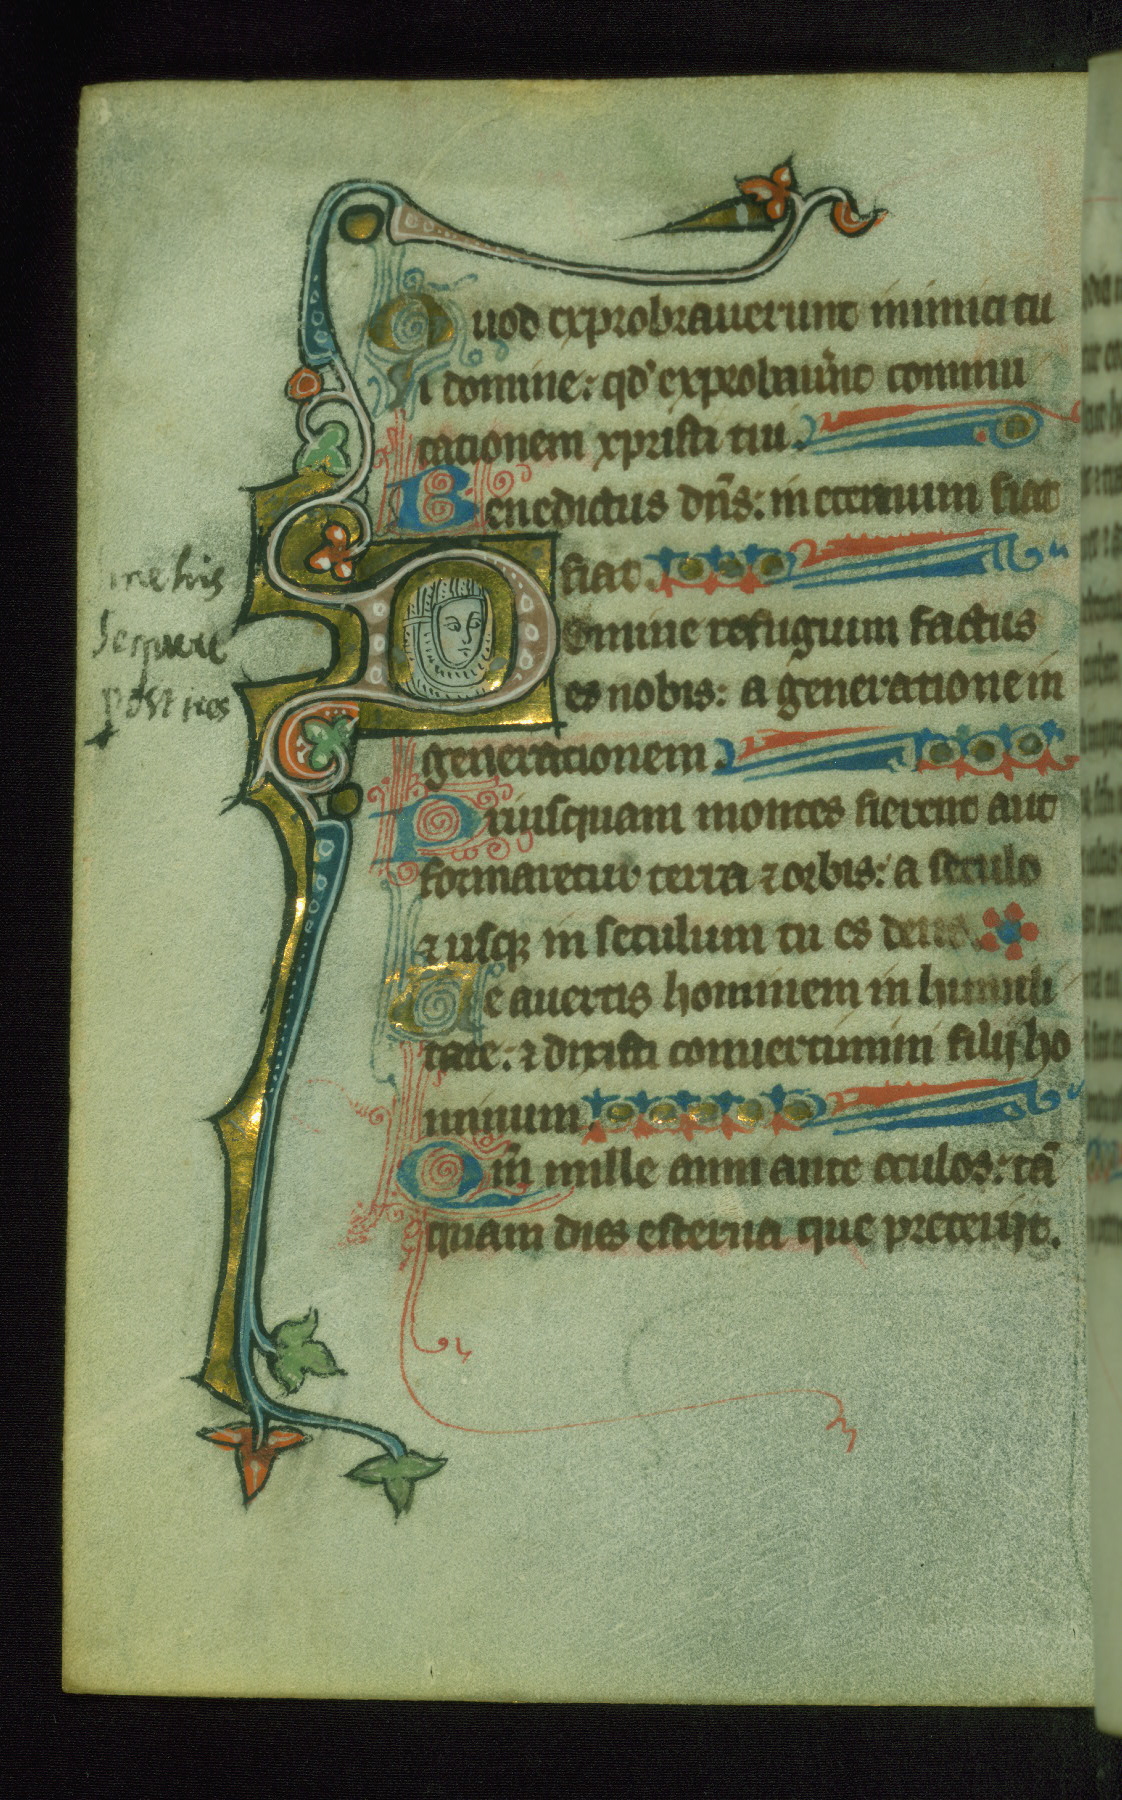 Quod exprobraverunt inimici tu
i domine: qd' exprobaur̄unt conmu
tationem xpristi tiu.
Benedictus dn̄s: in eternum fiat
fiat.
Domine refugium factus
es nobis: a generatione in
generationem.
Priusquam montes fierent aut
formaretur terra ⁊ orbis: a seculo
⁊ usq; in seculum tu es deus.
Ne avertas hominem in humili
tate: ⁊ dixisti convertimini filij ho
minum.
Qm̄ mille anni ante oculos: tā
quam dies esterna que preterijt.
sequere
post nes